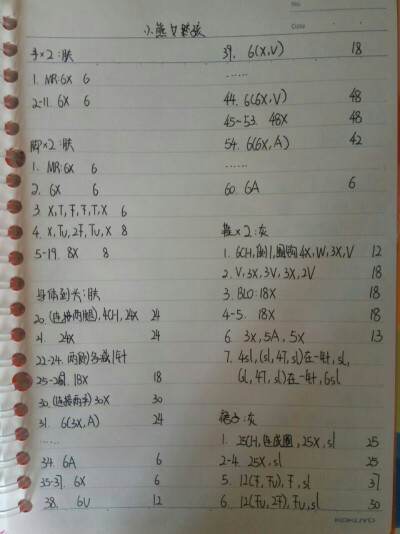 小熊女孩
手×2:肤
1. MR:6X 6
2-11. 6X 6
脚×2:肤
1. MR:6X 6
2. 6X 6
3. X,T,F,F,T,X 6
4. X,TU,2F,TU,X 8
5-19. 8X 8
身体到头:肤
20. (连接两腿),4CH,24X 24
21. 24X 24
22-24. 两侧各减1针
25-29. 18X 18
30. (连接两手)30X 30
31. 6(3X,A) 24
……
34. 6A 6
35-37. 6X 6
38. 6V 12
39. 6(X,V) 18
……
44. 6(6X,V) 48
45-53. 48X 48
54. 6(6X,A) 42
……
60. 6A 6
鞋×2:灰
1. 6CH,倒1,圈钩4X,W,3X,V 12
2. V,3X,3V,3X,2V 18
3. BLO:18X 18
4-5. 18X 18
6. 3X,5A,5X 13
7. 4sl,(sl,4T,sl)在一针,sl,
(sl,4T,sl)在一针,6sl
裙子:灰
1. 25CH,连成圈,25X,sl 25
2-4. 25X,sl 25
5. 12(F,FU),F,sl 37
6. 12(FU,2F),FU,sl 50
No.
Date